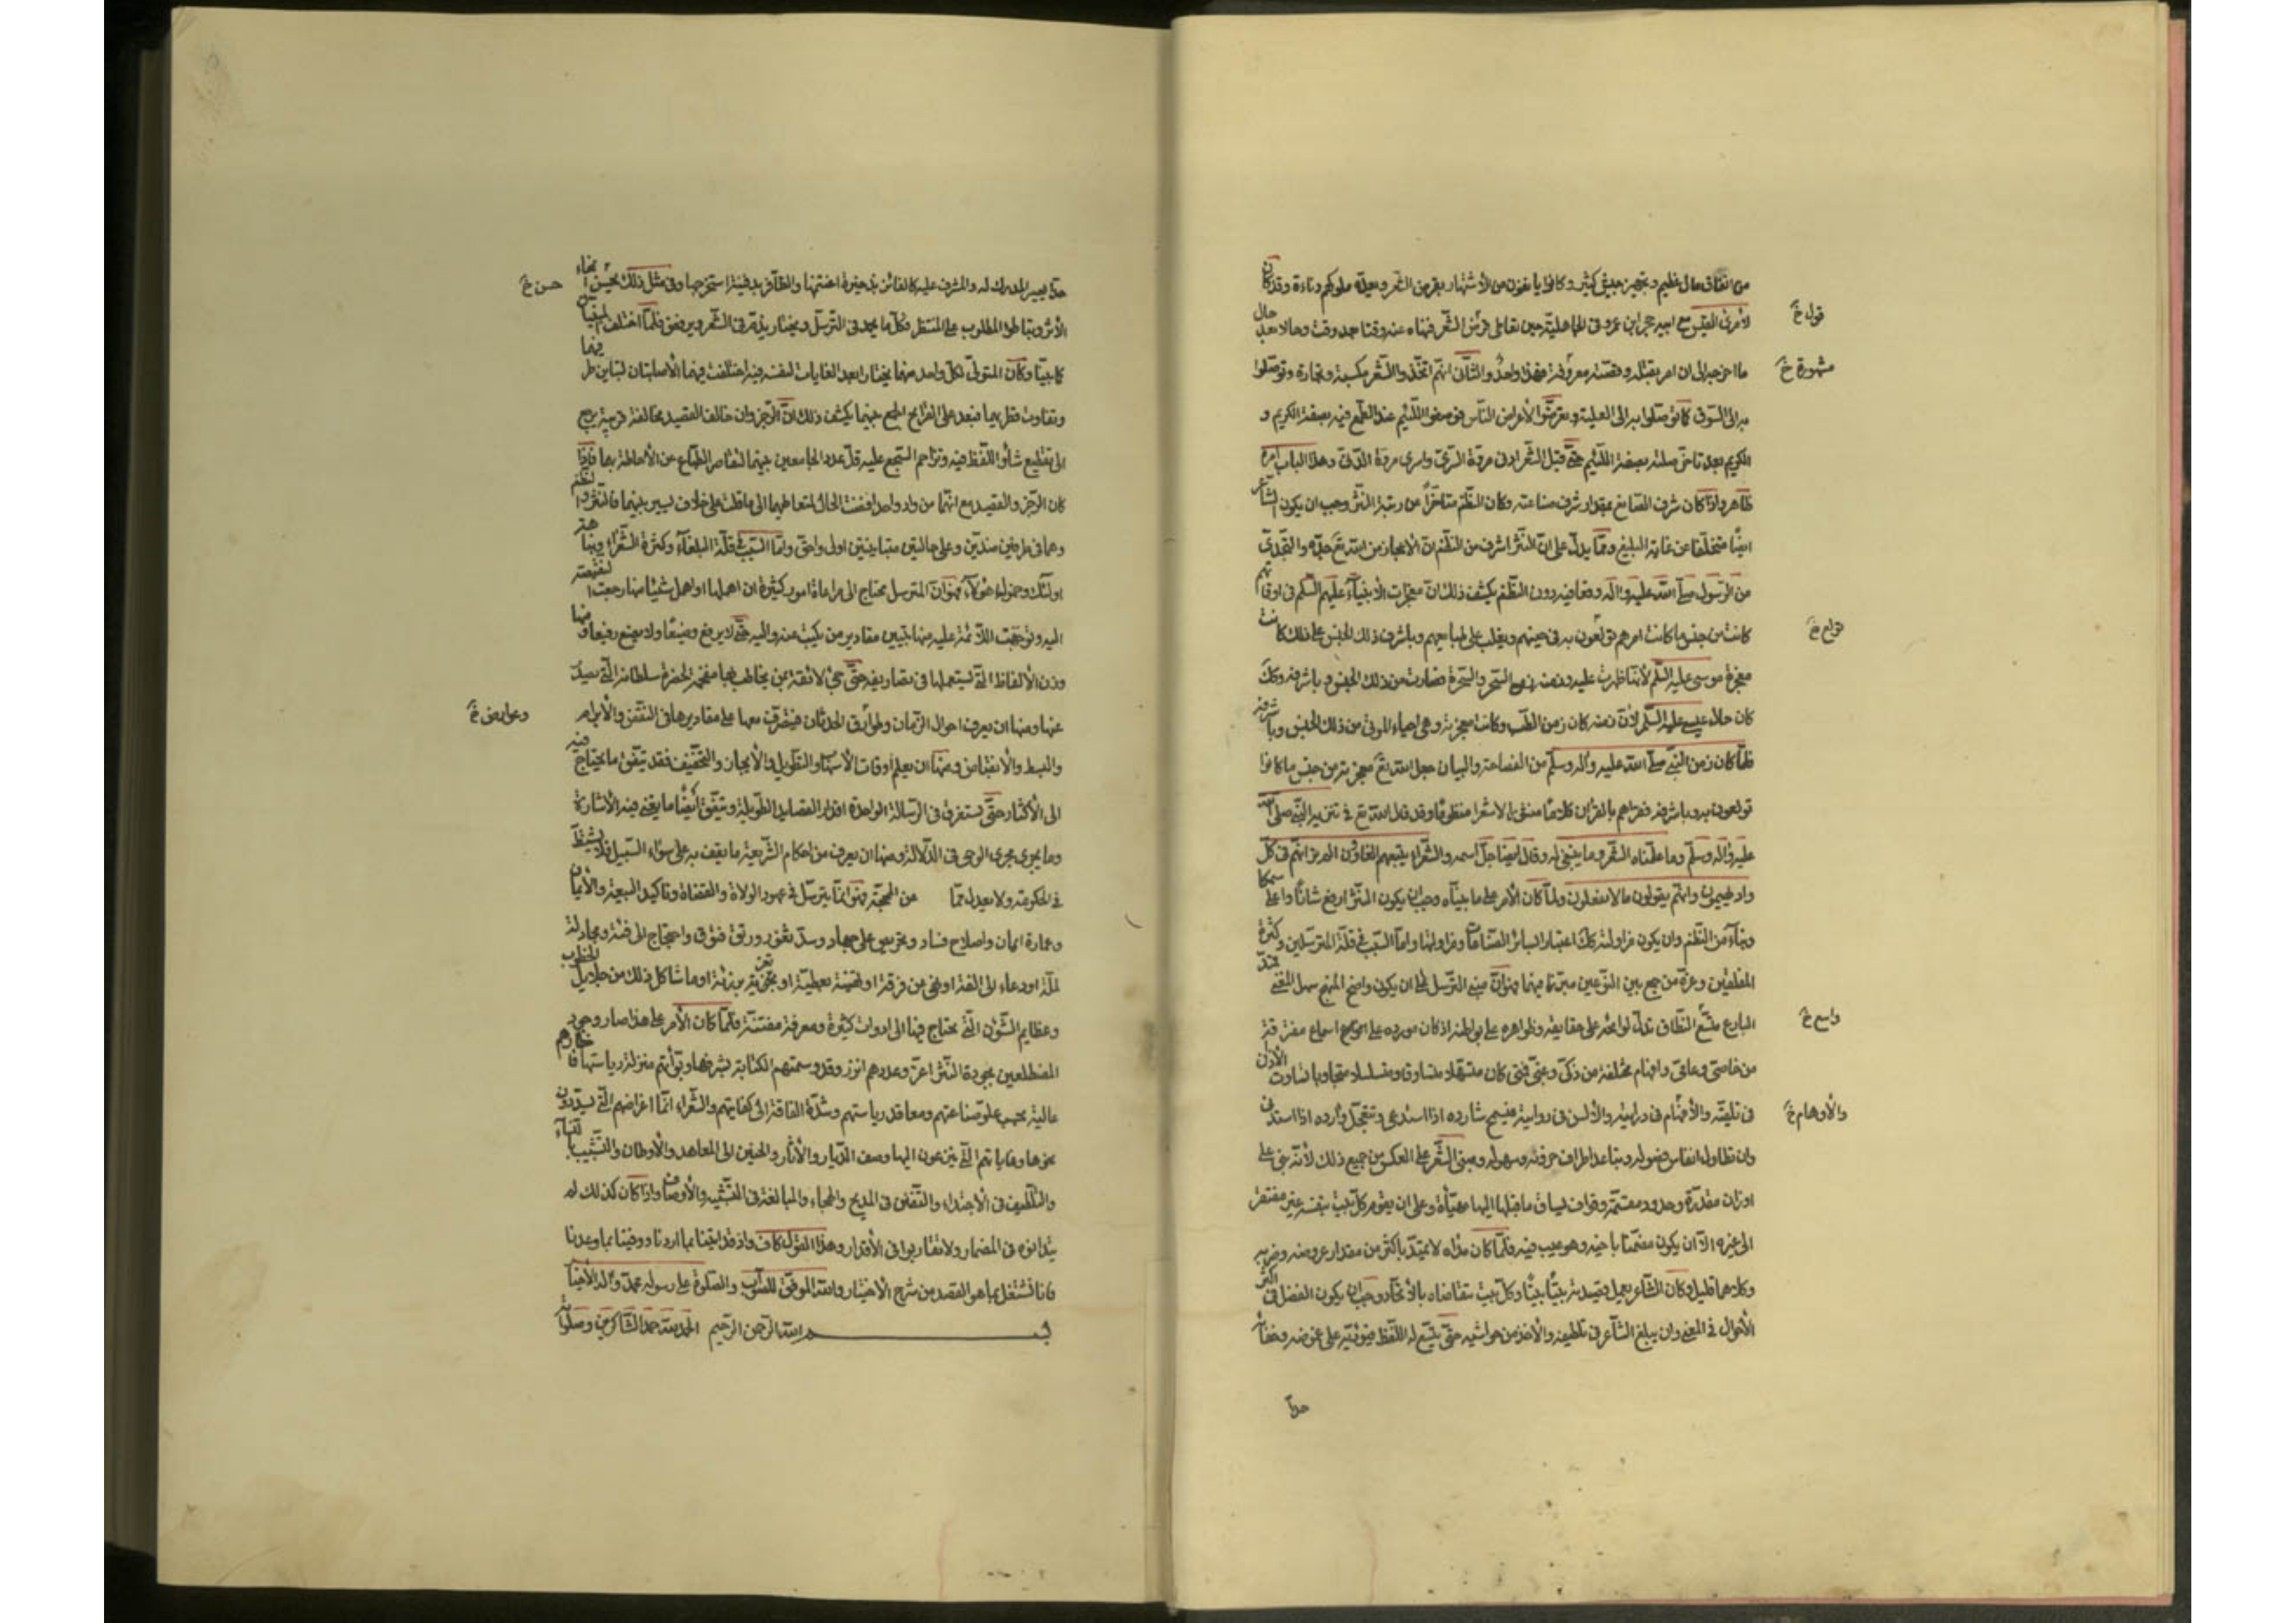 من انفاق مال عظيم وتجهيز جيش كثير وكانوا يانفون من الاشتهار بقرض الشعر ويعدّه ملوكهم دناءة وقد كان
لامرئ القيس مع ابيه حجر ابن عمرو في الجاهليّة حين تعاطى قرض الشعر فنهاه عنه وقتا بعد وقت وحالا بعد حال
قول خ
ما اخرجه الى ان امر بقتله وقصّته معروفة فهذا واحد والثّان انّهم اتّخذوا الشّعر مكسبة وتجارة وتوصّلوا
مشهورة خ
به الى السوق كما توصّلوا به الى العلية وتعرضّوا لأعراض النّاس فوصفوا اللّئيم عند الطّمع فيه بصفة الكريم و
الكريم بعد تاخّر صلته بصفة اللّئيم حتّى قيل الشّعر ادنى مروّة السّريّ واسرى مروّة الدّنيّ وهذا الباب امره
ظاهر واذا كان شرف الصّانع بمقدار شرف صناعته وكان النّظم متاخّرا عن رتبة النّثر وجب ان يكون الشّاعر
ايضًا متخلّفا عن غاية البليغ وممّا يدلّ على انّ النّثر اشرف من النّظم انّ الاعجاز من الله تع جدّه والتحدّي
من الرّسول صلّى الله عليه وآله وقعا فيه دون النّظم يكشف ذلك انّ معجزات الانبيآء عليهم السّلم في اوقاتهم
كانت من جنس ما كانت اممهم تولّعون به في حينهم ويغلب على طبايعهم وباشرف ذلك الجنس على ذلك كانت
تولع خ
معجزة موسى عليه السّلم لأنّها ظهرت عليه وزمنه زمن السّحر والسّحرة فصارت من ذلك الجنس وباشرفه وكك
كان حال عيسى عليه السّلم لانّ زمنه كان زمن الطّب وكانت معجزته وهي احياء الموتى من ذلك الجنس وباشرفه
فلمّا كان زمن النّبي صلّى الله عليه وآله وسلّم من الفصاحة والبيان جعل الله تع معجزته من جنس ما كانوا
تولعون به وباشرفه فتحدّاهم بالقرآن كلامًا منثورا لا شعرا منظومًا وقد قال الله تع في تنزيه النّبي صلّى الله
عليه وآله وسلّم وما علّمناه الشّعر وما ينبغي له وقال ايضا جلّ اسمه والشّعراء يتبعهم الغاوون الم تر انّهم في كلّ
واد يهيمون وانّهم يقولون ما لا يفعلون ولمّا كان الأمر على ما بيّناه وجب ان يكون النّثر ارفع شانًا واعلى سمكا
وبنآء من النّظم وان يكون مزاوله كك اعتبارا بسائر الصّناعات ومزاوليها وامّا السّبب في قلّة المترسّلين وكثرة
المفلقين وعزّة من جمع بين النّوعين مبرّزا فيهما فهو انّ مبنى التّرسّل على ان يكون واضح المنهج سهل المعنى
البارع متّسع النّطاق تدلّ لوايحه على حقايقه وظواهره على بواطنه اذ كان مورده على اسماع مفترقة
واسع خ
من خاصّي وعامّي وافهام مختلفة من ذكيّ وغبيّ فمتى كان متسهّلا متساوقا ومتسلسلا متجاوبا تساوت الأذن
في تلقيّه والأفهام في درايته والألسن في روايته فيسمح شارده اذا استدعي ويتعجّل وارده اذا استدنى
والأوهام خ
وان تطاول انفاس فصوله وتباعد اطراف حزونه وسهوله ومبنى الشّعر على العكس من جميع ذلك لأنّه بني على
اوزان مقدّرة وحدود مقسّمة وقواف يساق ما قبلها اليها مهيّأة وعلى ان يقوم كلّ بيت بنفسه غير مفتقر
الى غيره الّا ان يكون مضمّنا باخيه وهو عيب فيه فلمّا كان مداه لا يمتدّ باكثر من مقدار عروضه وضربه
وكلاهما قليل وكان الشّاعر يعمل قصيدته بيتًا بيتًا وكلّ بيت يتقاضاه بالاتّحاد وجب ان يكون الفضل في اكثر
الأحوال في المعنى وان يبلغ الشّاعر في تلطيفه والأخذ من حواشيه حتّى يتّسع له اللّفظ فيؤدّيه على غموضه وخفائه
حدّا
حدّا يصير المدرك له والمشرف عليه كالفائز بذخيرة اغتنمها والظّافر بدفينة استخرجها وفي مثل ذلك يحسن امّحاء
حسن خ
الأثر وتباطؤ المطلوب على المنتظر فكلّ ما يحمد في التّرسّل ويختار يذمّ في الشّعر ويرفض فلمّا اختلف المبنيان
كما بيّنّا وكان المتولّي لكلّ واحد منهما يختار ابعد الغايات لنفسه فيه اختلفت فيهما الأصابتان لتباين طرفيهما
وتفاوت قطريهما فبعد على القرايح الجمع بينهما يكشف ذلك انّ الرّجز وان خالف القصيد مخالفة قريبة ترجع
الى تقطيع شأو اللّفظ فيه وتزاحم السّجع عليه قلّ عدد الجامعين بينهما لتقاصر الطّباع عن الأحاطة بهما فاذا
كان الرّجز والقصيد مع انّهما من واد واحد افضت الحال بمتعاطيهما الى ما قلت على خلاف يسير بينهما فالنّثر والنّظم
وهما في طرفين ضدّين وعلى حالتين متباينتين اولى واحقّ وامّا السّبب في قلّة البلغاء وكثرة الشّعراء ونباهة
اولئك وخمول هؤلاء فهو انّ المترسل محتاج الى مراعاة امور كثيرة ان اهملها او اهمل شيئا منها رجعت النّقيصة
اليه وتوجّهت اللّائمة عليه منها تبيين مقادير من يكتب عنه واليه حتّى لا يرفع وضيعًا ولا يضع رفيعا ومنها
وزن الألفاظ الّتي يستعملها في تصاريفه حتّى تجيء لائقة بمن يخاطب بها مفخّمة لحضرة سلطانه الّتي يصدر
عنها ومنها ان يعرف احوال الزّمان وطوارق الحدثان فيتصرّف معها على مقاديرها في النّقض والأبرام
وعوارض خ
والبسط والأنقباض ومنها ان يعلم اوقات الأسهاب والتّطويل والأيجاز والتّخفيف فقد يتّفق ما يحتاج فيه
الى الأكثار حتّى يستغرق في الرّسالة الواحدة اقدار القصايد الطّويلة ويتّفق ايضًا ما يغني فيه الأشارة
وما يجري مجرى الوحي في الدّلالة ومنها ان يعرف من احكام الشّريعة ما يقف به على سوآء السّبيل فلا يشتطّ
في الحكومة ولا يعدل عمّا من المحجّة فهو انّما يترسّل في عهود الولاة والقضاة وتاكيد البيعة والأيمان
وعمارة ايمان واصلاح فساد وتحريض على جهاد وسدّ ثغور ورتق فتوق واحتجاج الى فئة ومجادلة
لملّة او دعاء الى الفة او نهي عن فرقة او تهنئة بعطيّة او تعزية برزيّة او ما شاكل ذلك من جلايل الخطوب
وعظايم الشّؤن الّتي يحتاج فيها الى ادوات كثيرة ومعرفة مفتنّة فلمّا كان الأمر على هذا صار وجود
المضطلعين بجودة النّثر اعزّ وعددهم انزر وقد وسمتهم الكتابة بشرفها وبوّأتهم منزلة رياستها فاخطارهم
عالية بحسب علوّ صناعتهم ومعاقد رياستهم وشدّة الفاقة الى كفايتهم والشّعراء انّما اغراضهم الّتي يسدّدون
نحوها وغاياتهم الّتي ينزعون اليها وصف الدّيار والآثار والحنين الى المعاهد والأوطان والتّشبيب بالنّساء
والتّلطيف في الأجتداء والتّفنّن في المديح والهجاء والمبالغة في التّشبيه والأوصاف واذا كان كذلك لم
يتدانوا في المضمار ولا تقاربوا في الأقدار وهذا القول كاف واذ قد اتينا بما اردنا ووفينا بما وعدنا
فانا نشتغل بما هو القصد من شرح الأختيار والله الموفّق للصّواب والصّلوة على رسوله محمّد وآله الأخيار
بسم الله الرّحمن الرّحيم الحمد لله حمد الشّاكرين وصلواته